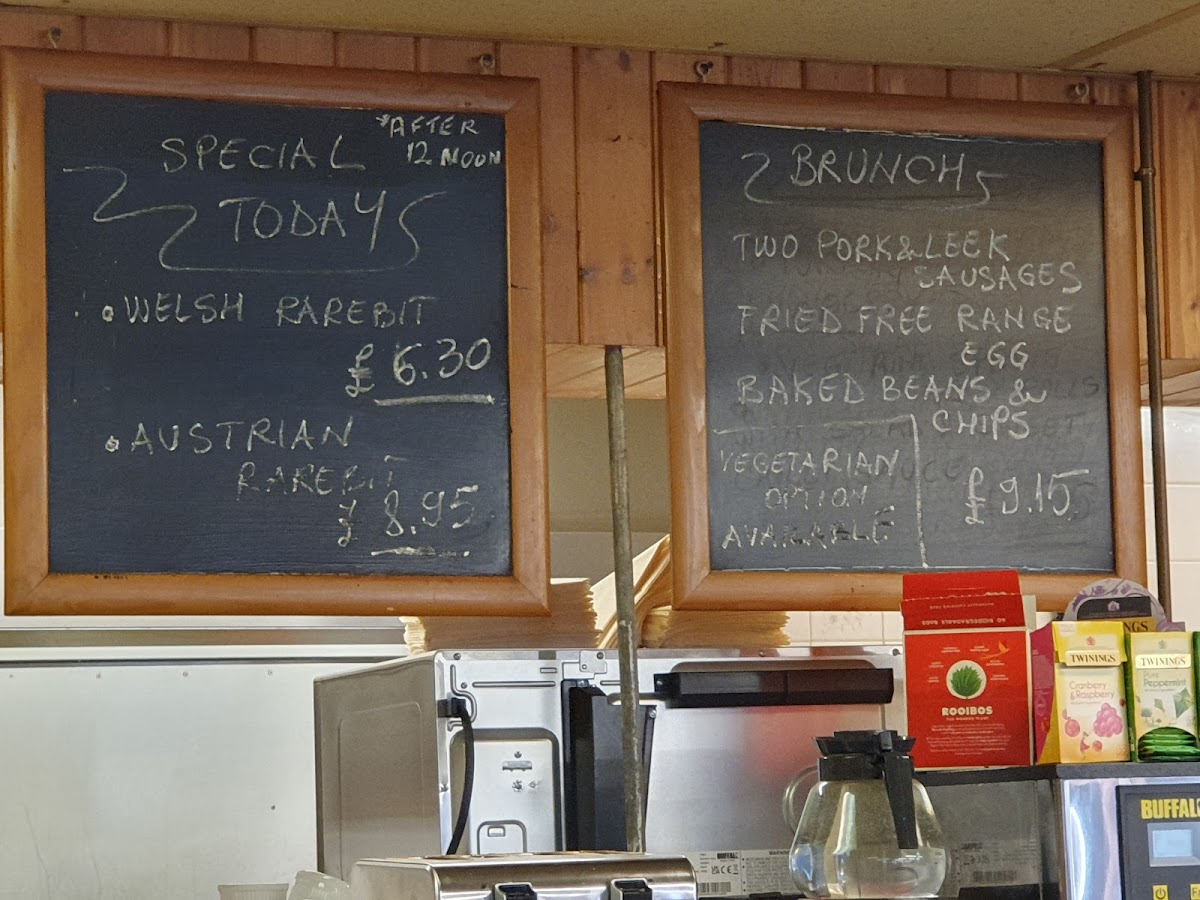 SPECIAL
*AFTER
12 NOON
TODAY
• WELSH RAREBIT
£6.30
• AUSTRIAN
RAREBIT
£8.95
BRUNCH
TWO PORK & LEEK
SAUSAGES
FRIED FREE RANGE
EGG
BAKED BEANS &
CHIPS
VEGETARIAN
OPTION
AVAILABLE
£9.15
ROOIBOS
TWININGS
Cranberry
& Raspberry
TWININGS
Pure
Peppermint
NGS
BUFFAL
BUFFALO